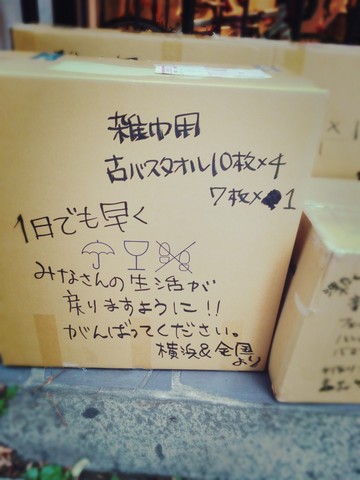 雑巾用
古バスタオル10枚×4
7枚×1
1日でも早く
みなさんの生活が
戻りますように!!
がんばってください。
横浜&全国
より